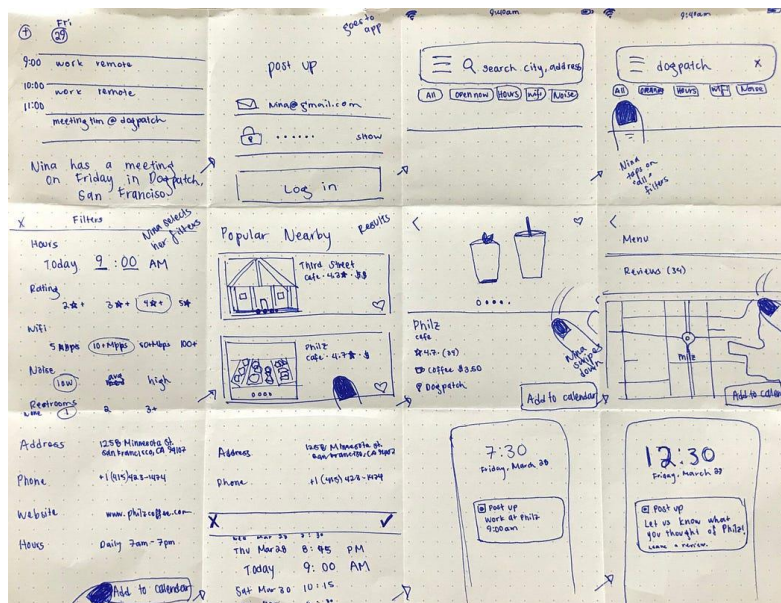 Fri
29
9:00 work remote
10:00 work remote
11:00
meeting 11am @ dogpatch
Nina has a meeting
on Friday in Dogpatch,
San Francisco
goes to
app
post up
Nina@gmail.com
...... show
Log in
9:40am
search city, address
All open now Hours Wifi Noise
9:40am
dogpatch x
All opennow Hours Wifi Noise
Nina
taps on
"all"
filters
X Filters
Nina selects
her filters
Hours
Today 9:00 AM
Rating
2★+ 3★+ 4★+ 5★
Wifi
5 Mbps 10+Mbps 50+Mbps 100+
Noise
low avg high
Restrooms
None 1 2 3+
Popular Nearby
Results
Third Street
cafe · 4.3★ · $$
Philz
cafe · 4.7★ · $
Philz
cafe
★4.7 · (34)
Coffee $3.50
Dogpatch
Nina
swipes
down
Add to calendar
Menu
Reviews (34)
Philz
Add to calen
Address 1258 Minnesota St.
San Francisco, CA 94107
Phone +1 (415) 423-1424
Website www.philzcoffee.com
Hours Daily 7am - 7pm
Add to calendar
Address 1258 Minnesota St.
San Francisco, CA 94107
Phone +1 (415) 423-1424
X ✓
Thu Mar 28 8:45 PM
Today 9:00 AM
Sat Mar 30 10:15
7:30
Friday, March 29
Post up
Work at Philz
9:00am
12:30
Friday, March 29
Post up
Let us know what
you thought of Philz!
Leave a review.